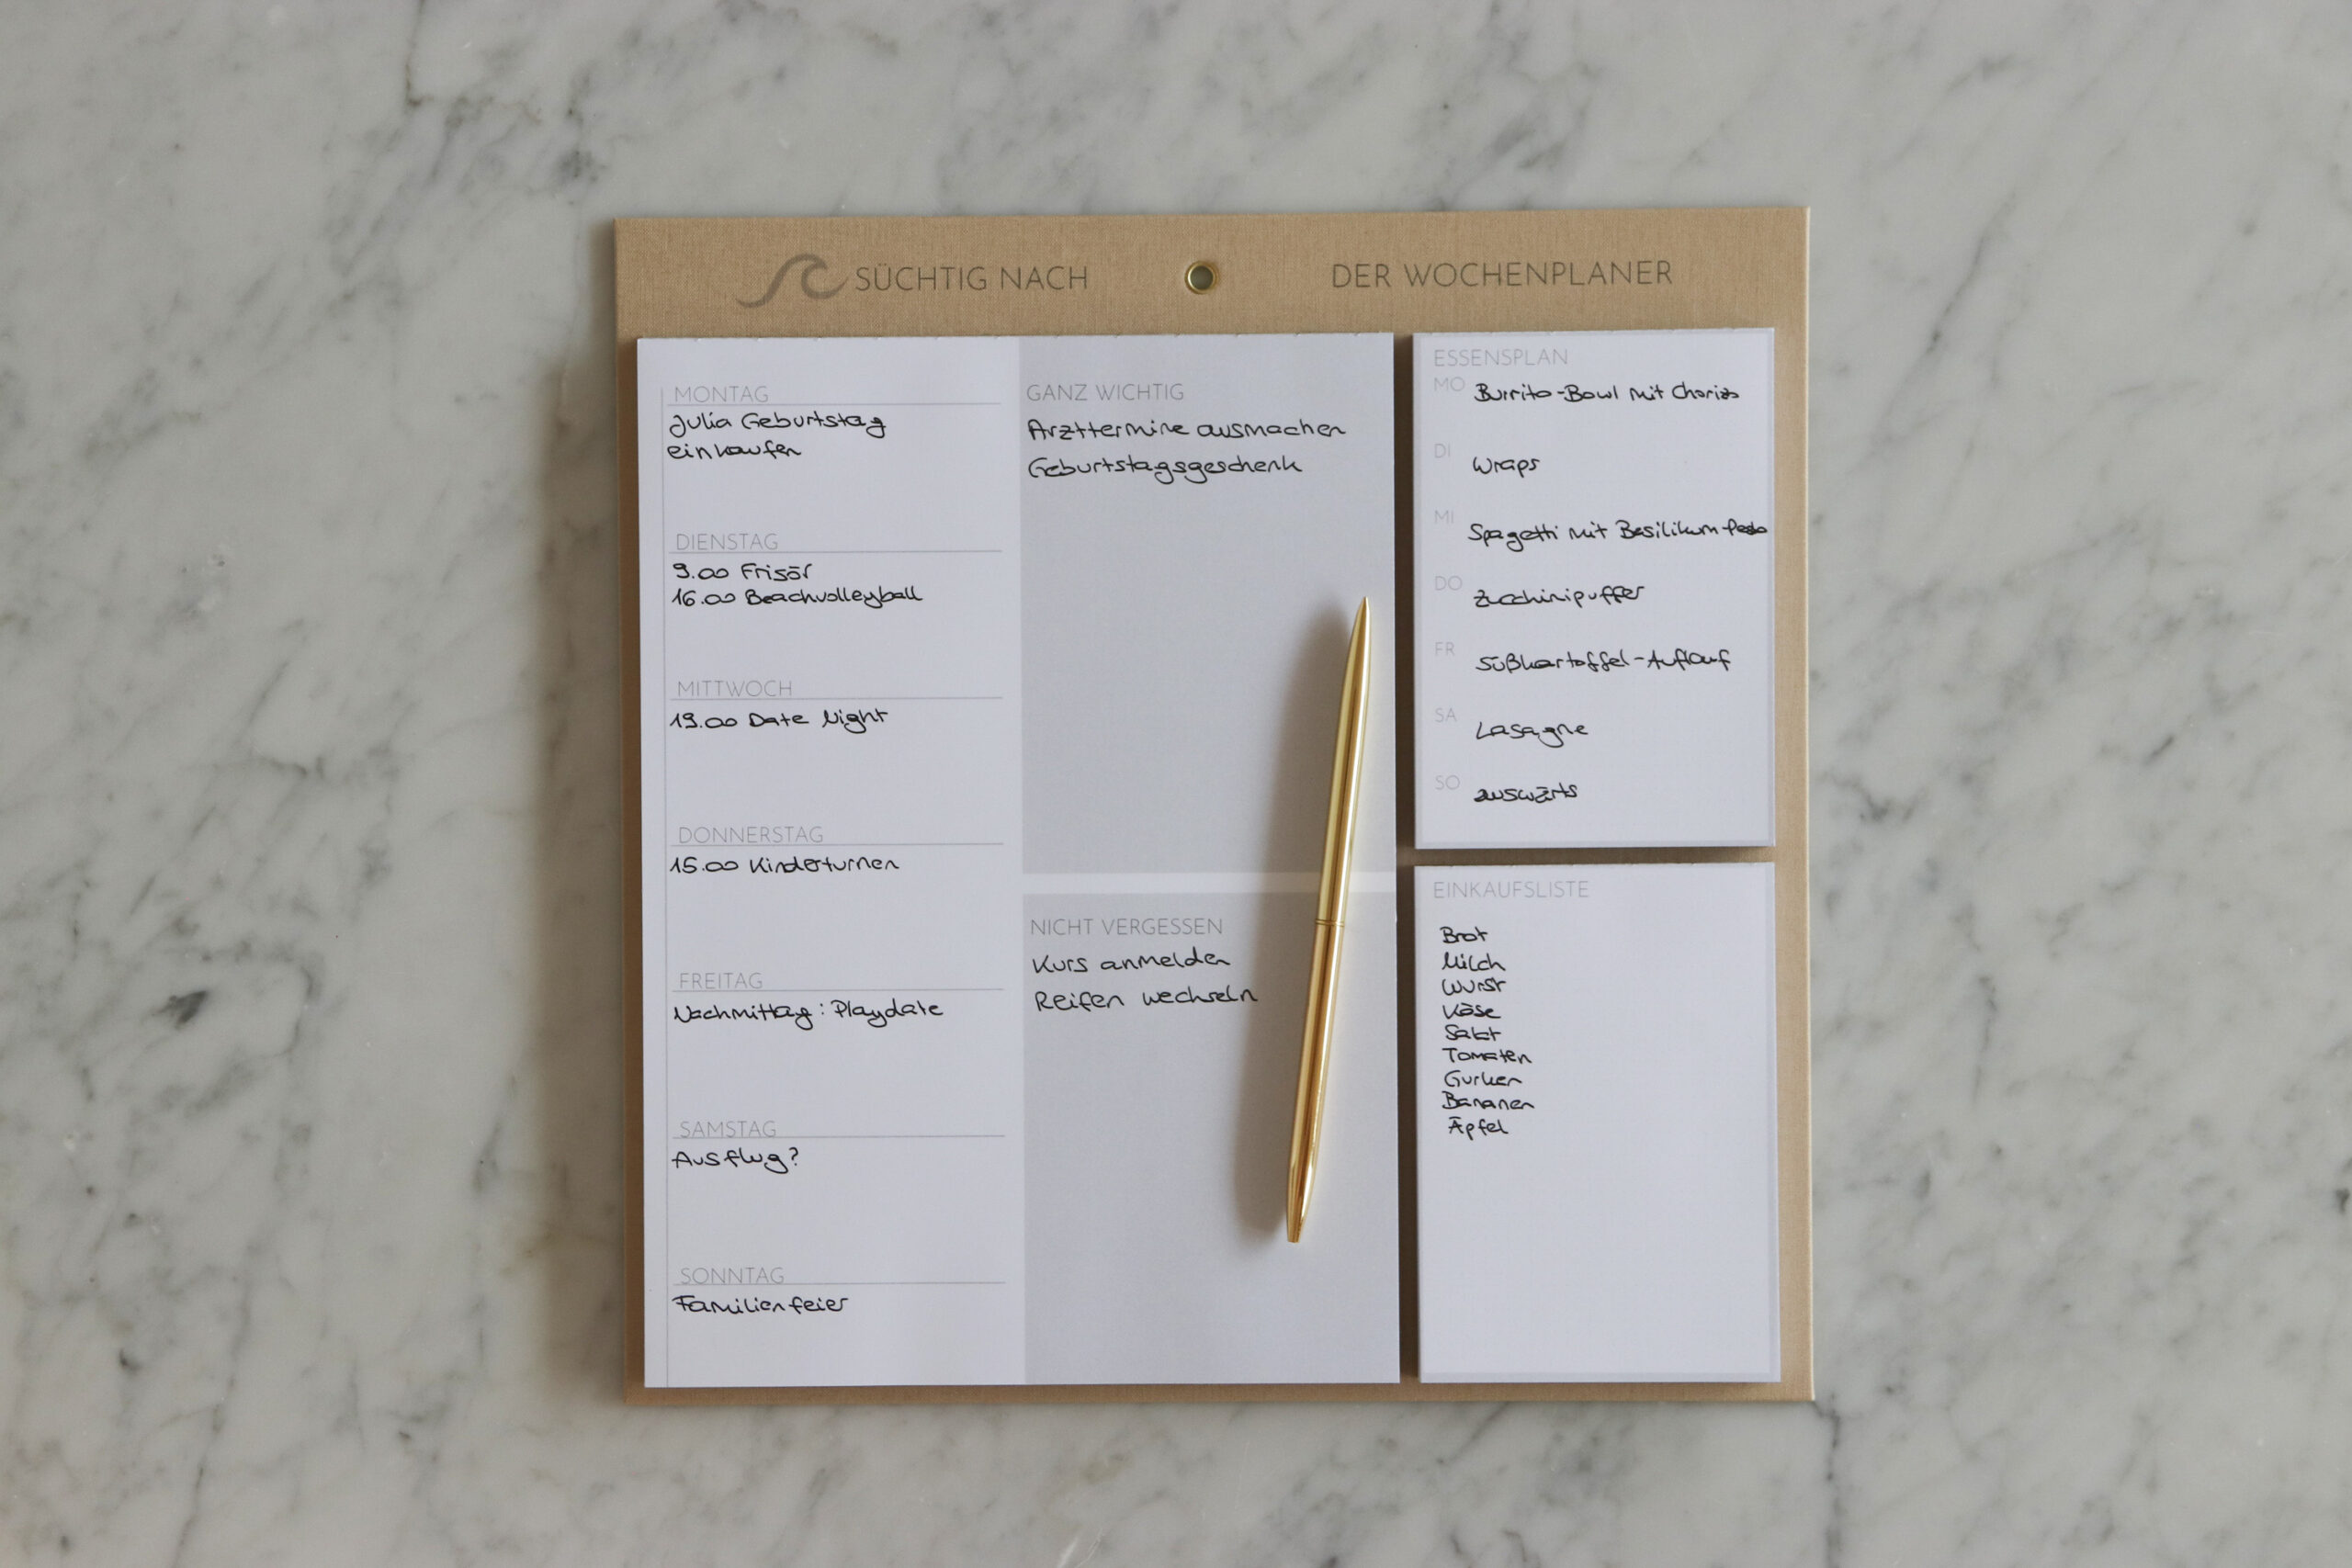 SÜCHTIG NACH
DER WOCHENPLANER
MONTAG
Julia Geburtstag
einkaufen
DIENSTAG
9.00 Frisör
16.00 Beachvolleyball
MITTWOCH
19.00 Date Night
DONNERSTAG
15.00 Kinderturnen
FREITAG
Nachmittag: Playdate
SAMSTAG
Ausflug?
SONNTAG
Familienfeier
GANZ WICHTIG
Arzttermine ausmachen
Geburtstagsgeschenk
NICHT VERGESSEN
Kurs anmelden
Reifen wechseln
ESSENSPLAN
MO Burrito-Bowl mit Chorizo
DI Wraps
MI Spagetti mit Basilikum-Pesto
DO Zucchinipuffer
FR Süßkartoffel-Auflauf
SA Lasagne
SO auswärts
EINKAUFSLISTE
Brot
Milch
Wurst
Käse
Salat
Tomaten
Gurken
Bananen
Äpfel